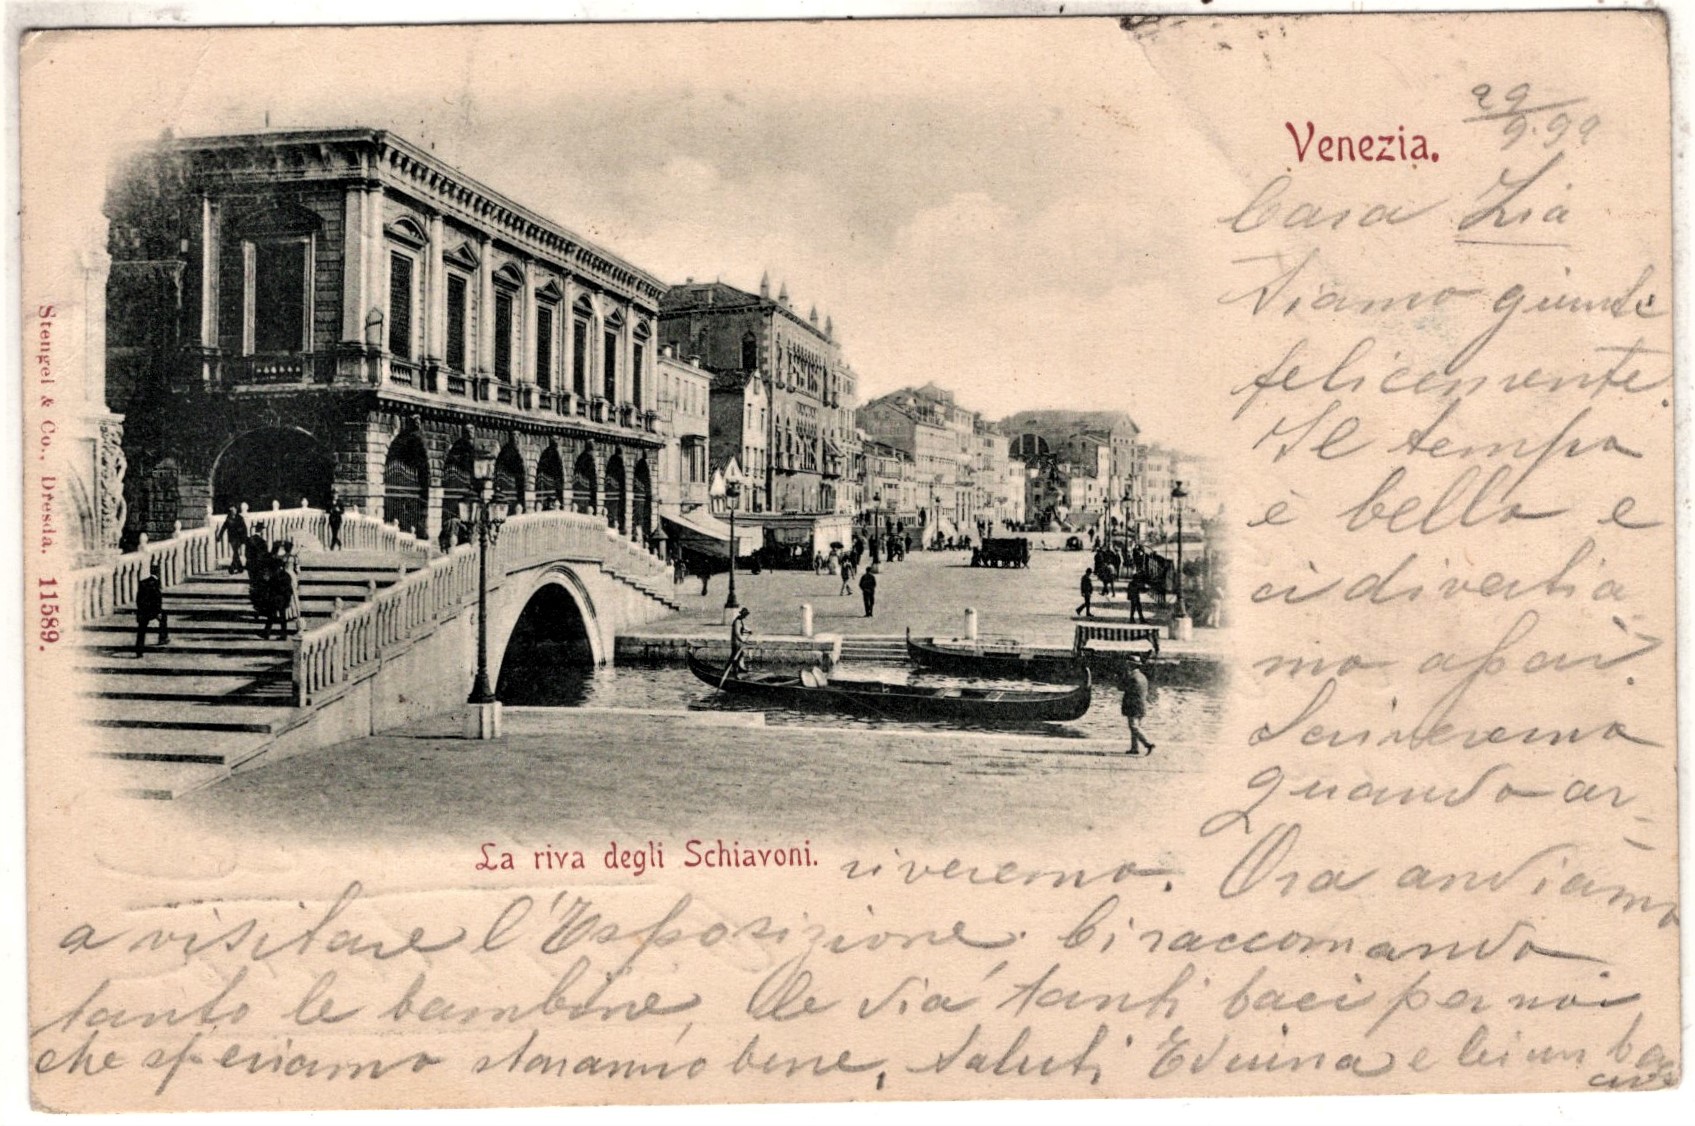 Venezia.
29
9.99
Cara Zia
Siamo giunte
felicemente.
Il tempo
è bello e
ci divertia
mo assai.
Scriveremo
quando ar-
La riva degli Schiavoni.
riveremo. Ora andiamo
a visitare l'Esposizione. Ci raccomando
tanto le bambine, le dia tanti baci per noi
che speriamo staranno bene, saluti Edvina e lei un
Stengel & Co., Dresda. 11589.